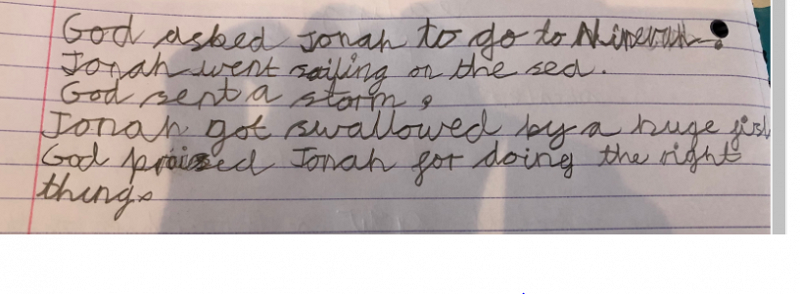 God asked Jonah to go to Ninevah.
Jonah went sailing on the sea.
God sent a storm.
Jonah got swallowed by a huge fish
God praised Jonah for doing the right
thing.